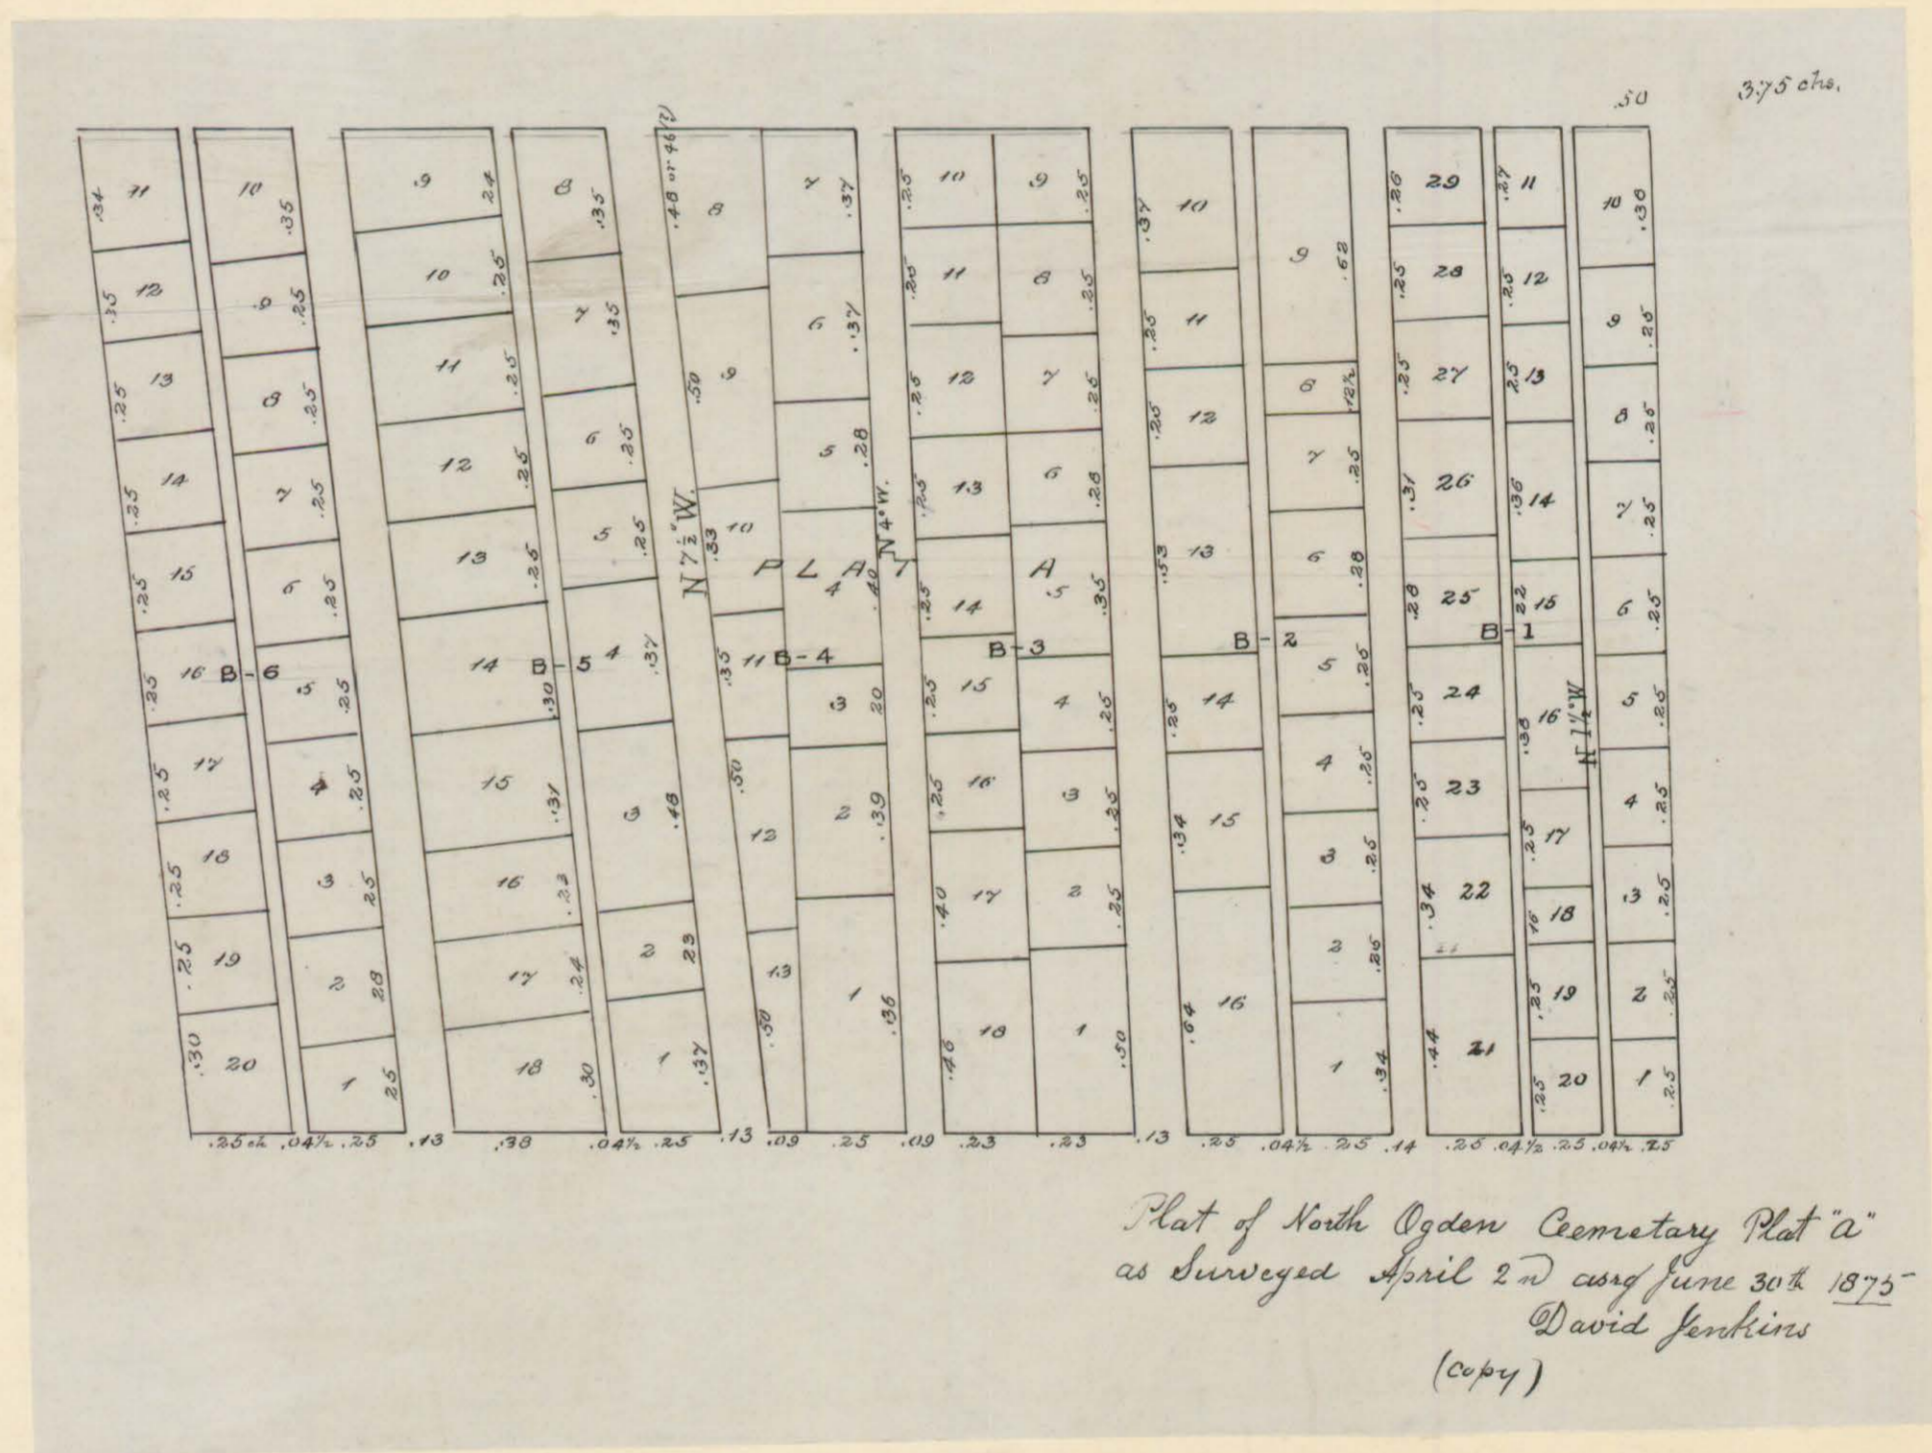 .50 3.75 chs.
.34 11
.35 12
.25 13
.25 14
.25 15
.25 16
.25 17
.25 18
.25 19
.30 20
10 .35
9 .25
8 .25
7 .25
6 .25
B-6
5 .25
4 .25
3 .25
2 .28
1 .25
9 .24
10 .25
11 .25
12 .25
13 .25
14 .30
15 .31
16 .23
17 .24
18 .30
8 .35
7 .35
6 .25
5 .25
B-5
4 .37
3 .48
2 .23
1 .37
.48 or 46(?)
8
.50 9
N 7½° W.
.33 10
.35 11
.50 12
.50 13
7 .37
6 .37
5 .28
4 .40
B-4
3 .20
2 .39
1 .36
N 4° W.
PLAT A
.25 10
.25 11
.25 12
.25 13
.25 14
.25 15
.25 16
.40 17
.46 18
9 .25
8 .25
7 .25
6 .28
5 .35
B-3
4 .25
3 .25
2 .25
1 .50
.37 10
.25 11
.25 12
.53 13
.25 14
.34 15
.64 16
9 .62
8 .12½
7 .25
6 .28
B-2
5 .25
4 .25
3 .25
2 .25
1 .34
.26 29
.25 28
.25 27
.31 26
.28 25
.25 24
.25 23
.34 22
.44 21
.27 11
.25 12
.25 13
.36 14
.22 15
B-1
.38 16
.25 17
.16 18
.25 19
.25 20
N 1½° W.
10 .38
9 .25
8 .25
7 .25
6 .25
5 .25
4 .25
3 .25
2 .25
1 .25
.25 ch .04½ .25 .13 .38 .04½ .25 .13 .09 .25 .09 .23 .23 .13 .25 .04½ .25 .14 .25 .04½ .25 .04½ .25
Plat of North Ogden Ceemetary Plat "A"
as Surveyed April 2nd June 30th 1875
David Jenkins
(copy)